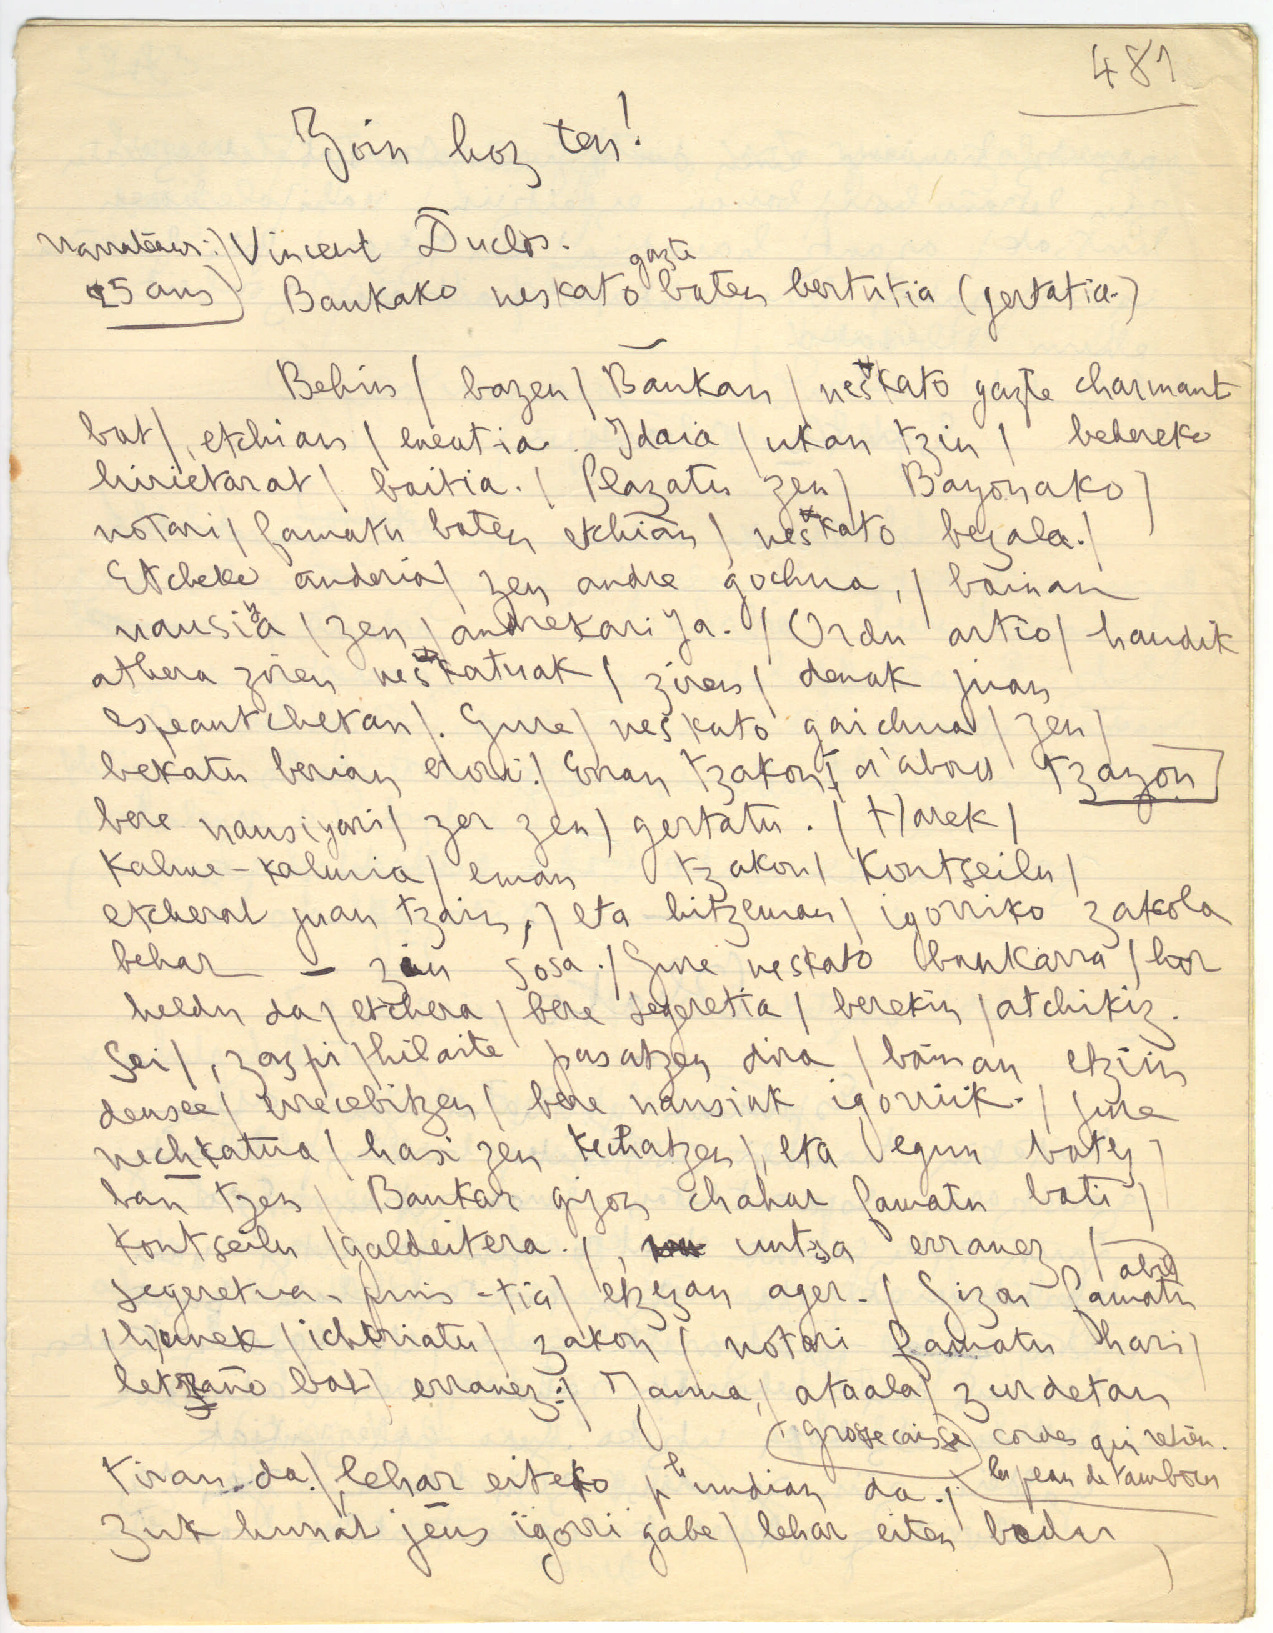 481
Join hoz ten!
narrateur:) Vincent Duclos.
25 ans) Baukako neskato gazte baten bertutia (gertatia.)
Behin / bazen / Baukan / neškato gazte charmant
bat /, etchian / eneutia. Idaia / ukan tzin / behereko
hirietarat / baitia. / Plazatu zen / Bayonako /
notari / famatu baten etchian / neškato bezala. /
Etcheko anderia / zen andre gochua, / bainan
nausiya / zen / andrekari ja. / Ordu artio / handik
athera ziren neškatuak / ziren / denak juan
espeantchetan /. Gure / neškato gaichua / zen /
bekatu berian erori. / Erran tzakon, d'abord tzayon
bere nausiyari / zer zen / gertatu. / Harek /
kalme-kalmia / eman tzakon / kontseilu /
etcherat juan tzain, / eta hitzeman / igorriko zakola
behar – zien sosa. / Gure neskato baukarra / hor
heldu da / etchera / bere segeretia / berekin / atchikiz.
Sei /, zazpi / hilaite pasatzen dira / bainan etziin
deusee / errecebitzen / bere nausiak igorriik. / Gure
nechkatua / hasi zen kechatzen /, eta egun baten /
ban tzen / Baukar gizon chahar famatu bati /
kontseilu / galdeitera. /, untsa erranez /
segeretua - puis - tia / etzezan ager. / Gizon famatu
abil
/ hunek / ichkriatu / zakon / notari famatu hari /
letraño bat / erranez: / Jauna, / ataala / zurdetan
(grosse caisse) cordes qui retien.
la peau de tambour
tiran da. / lehar eiteko p^h^undian da. /
Zuk hunat jeus igorri gabe / lehar eiten badu